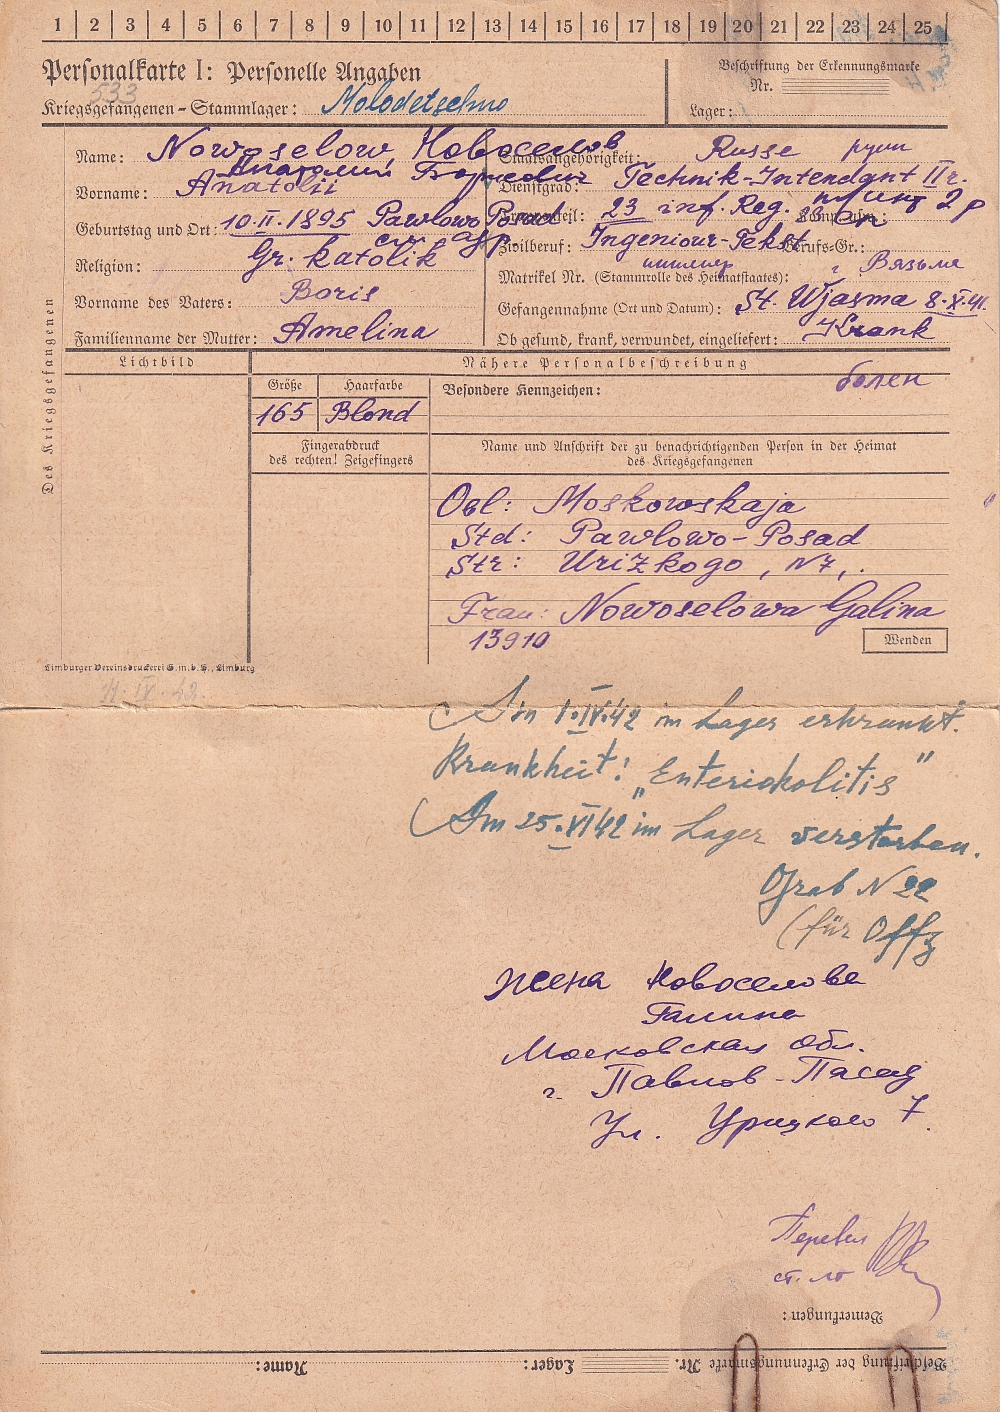 1 2 3 4 5 6 7 8 9 10 11 12 13 14 15 16 17 18 19 20 21 22 23 24 25
Personalkarte I: Personelle Angaben
Beschriftung der Erkennungsmarke
Nr.
533
Kriegsgefangenen-Stammlager: Molodetschno
Lager:
Name: Nowoselow, Новоселов
Staatsangehörigkeit: Russe
Анатолий Борисович
Vorname: Anatolii
Dienstgrad: Technik-Intendant II r.
Geburtstag und Ort: 10.II.1895 Pawlowo Posad
23 inf. Reg.
Zivilberuf: Ingeniour-
Berufs-Gr.:
Religion: Gr. katolik
инженер
г. Вязьма
Matrikel Nr. (Stammrolle des Heimatstaates):
Vorname des Vaters: Boris
Gefangennahme (Ort und Datum): St. Wjasma 8.X.41.
Familienname der Mutter: Amelina
Ob gesund, krank, verwundet, eingeliefert: Krank
Des Kriegsgefangenen
Lichtbild
Nähere Personalbeschreibung
болен
Größe
Haarfarbe
Besondere Kennzeichen:
165 Blond
Fingerabdruck
des rechten! Zeigefingers
Name und Anschrift der zu benachrichtigenden Person in der Heimat
des Kriegsgefangenen
Obl: Moskowskaja
Std: Pawlowo-Posad
Str: Urizkogo, N7,.
Frau: Nowoselowa Galina
13910
Wenden
Limburger Vereinsdruckerei G.m.b.H., Limburg
11.IV.42.
Am 1.IV.42 im Lager erkrankt.
Krankheit: „Enteriokolitis"
Am 25.VI 42 im Lager verstorben.
Grab N 22
(für Offz
Жена Новоселова
Галина
Московская обл.
г. Павлов-Пасад
Ул. Урицкого 7.
Перевел
ст. лт
Bemerkungen:
Beschriftung der Erkennungsmarke Nr.
Lager:
Name: